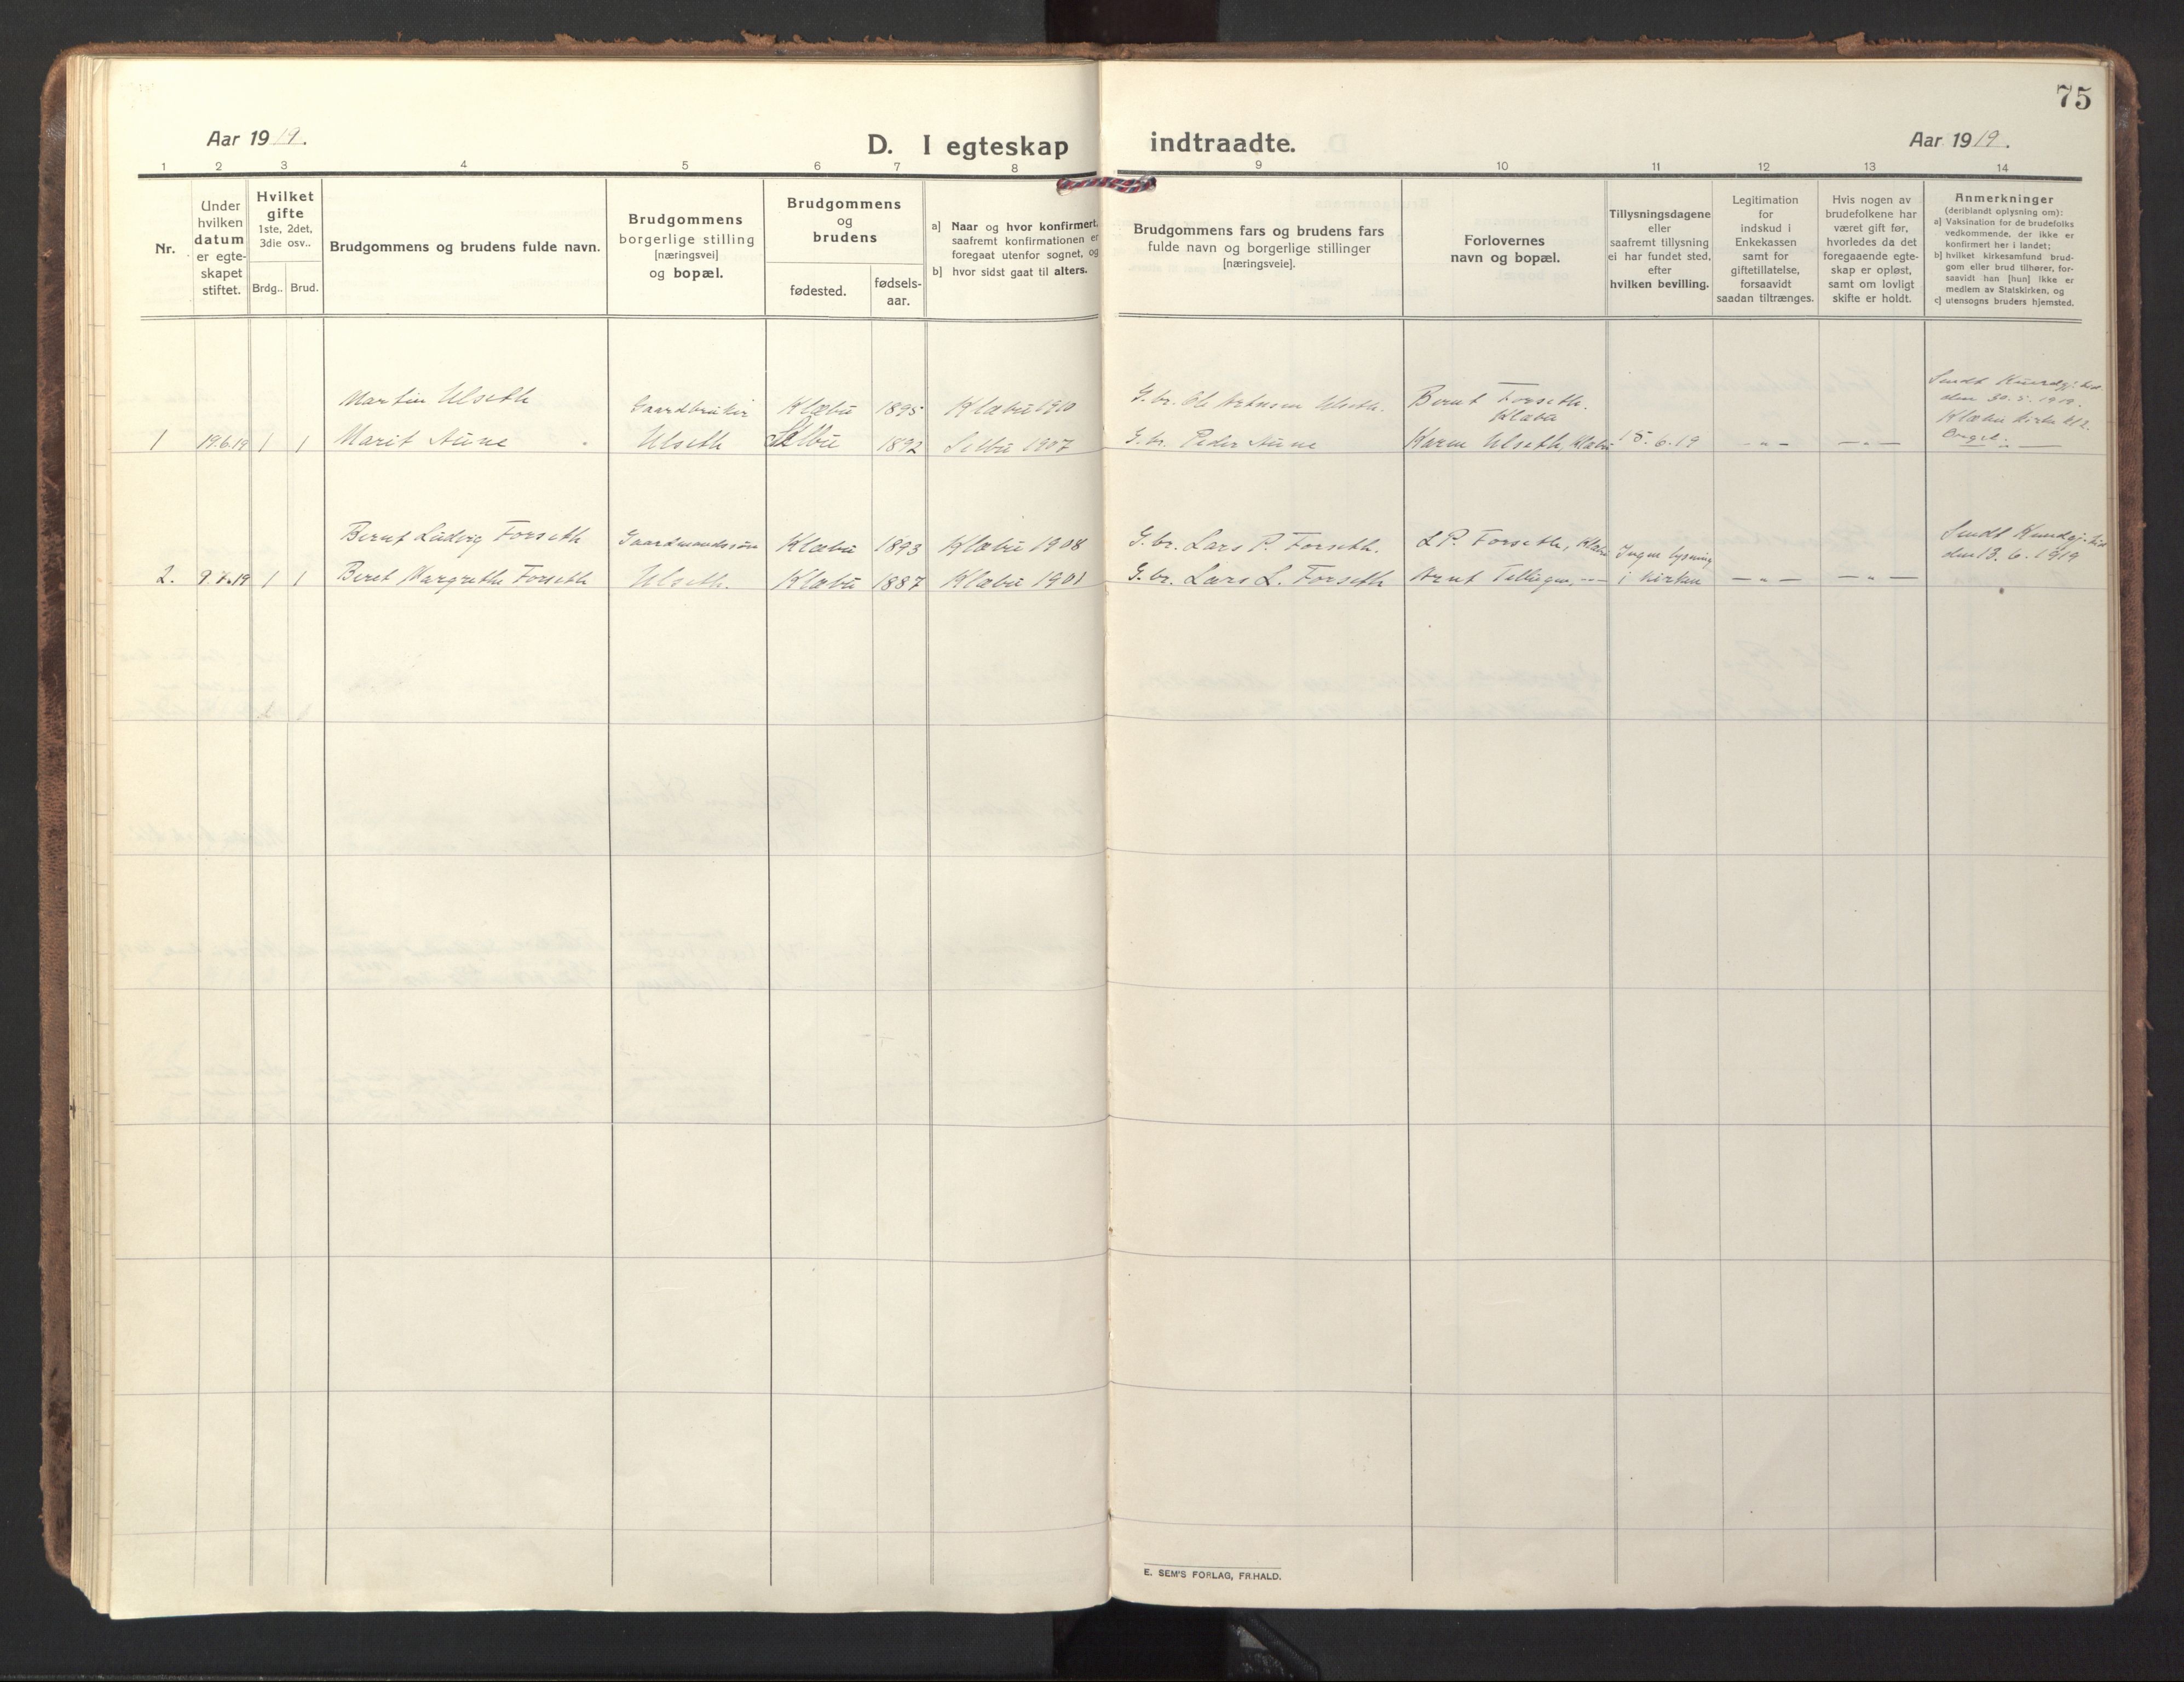 75
Aar 1919.
D. I egteskap indtraadte.
Aar 1919.
1 2 3 4 5 6 7 8 9 10 11 12 13 14
Nr.
Under
hvilken
datum
er egte-
skapet
stiftet.
Hvilket
gifte
1ste, 2det,
3die osv..
Brdg.. Brud.
Brudgommens og brudens fulde navn.
Brudgommens
borgerlige stilling
[næringsvei]
og bopæl.
Brudgommens
og
brudens
fødested.
fødsels-
aar.
a] Naar og hvor konfirmert,
saafremt konfirmationen er
foregaat utenfor sognet, og
b] hvor sidst gaat til alters.
Brudgommens fars og brudens fars
fulde navn og borgerlige stillinger
[næringsveie].
Forlovernes
navn og bopæl.
Tillysningsdagene
eller
saafremt tillysning
ei har fundet sted,
efter
hvilken bevilling.
Legitimation
for
indskud i
Enkekassen
samt for
giftetillatelse,
forsaavidt
saadan tiltrænges.
Hvis nogen av
brudefolkene har
været gift før,
hvorledes da det
foregaaende egte-
skap er opløst,
samt om lovligt
skifte er holdt.
Anmerkninger
(deriblandt oplysning om):
a] Vaksination for de brudefolks
vedkommende, der ikke er
konfirmert her i landet;
b] hvilket kirkesamfund brud-
gom eller brud tilhører, for-
saavidt han [hun] ikke er
medlem av Statskirken, og
c] utensogns bruders hjemsted.
Martin Ulseth Gaardbruker Klæbu 1895 Klæbu 1910 G. br. Ole Arntsen Ulseth. Bernt Forseth. Klæbu
Sendt Kundgj. tid.
den 30.5.1919.
Klæbu kirke kl 2.
Orgel.
1 19.6.19 1 1 Marit Aune Ulseth Selbu 1892 Selbu 1907 G. br. Peder Aune Karen Ulseth, Klæbu 15.6.19 — „ — — „ —
Bernt Ludvig Forseth Gaardmandssøn Klæbu 1893 Klæbu 1908 G. br. Lars P. Forseth. L P. Forseth, Klæbu Ingen lysning
Sendt Kundgj. tid
den 13.6.1919
2. 9.7.19 1 1 Beret Margrethe Forseth Ulseth. Klæbu 1887 Klæbu 1901 G. br. Lars L. Forseth Arnt Tellugen, — „ — i kirken — „ — — „ —
E. SEM'S FORLAG, FR.HALD.